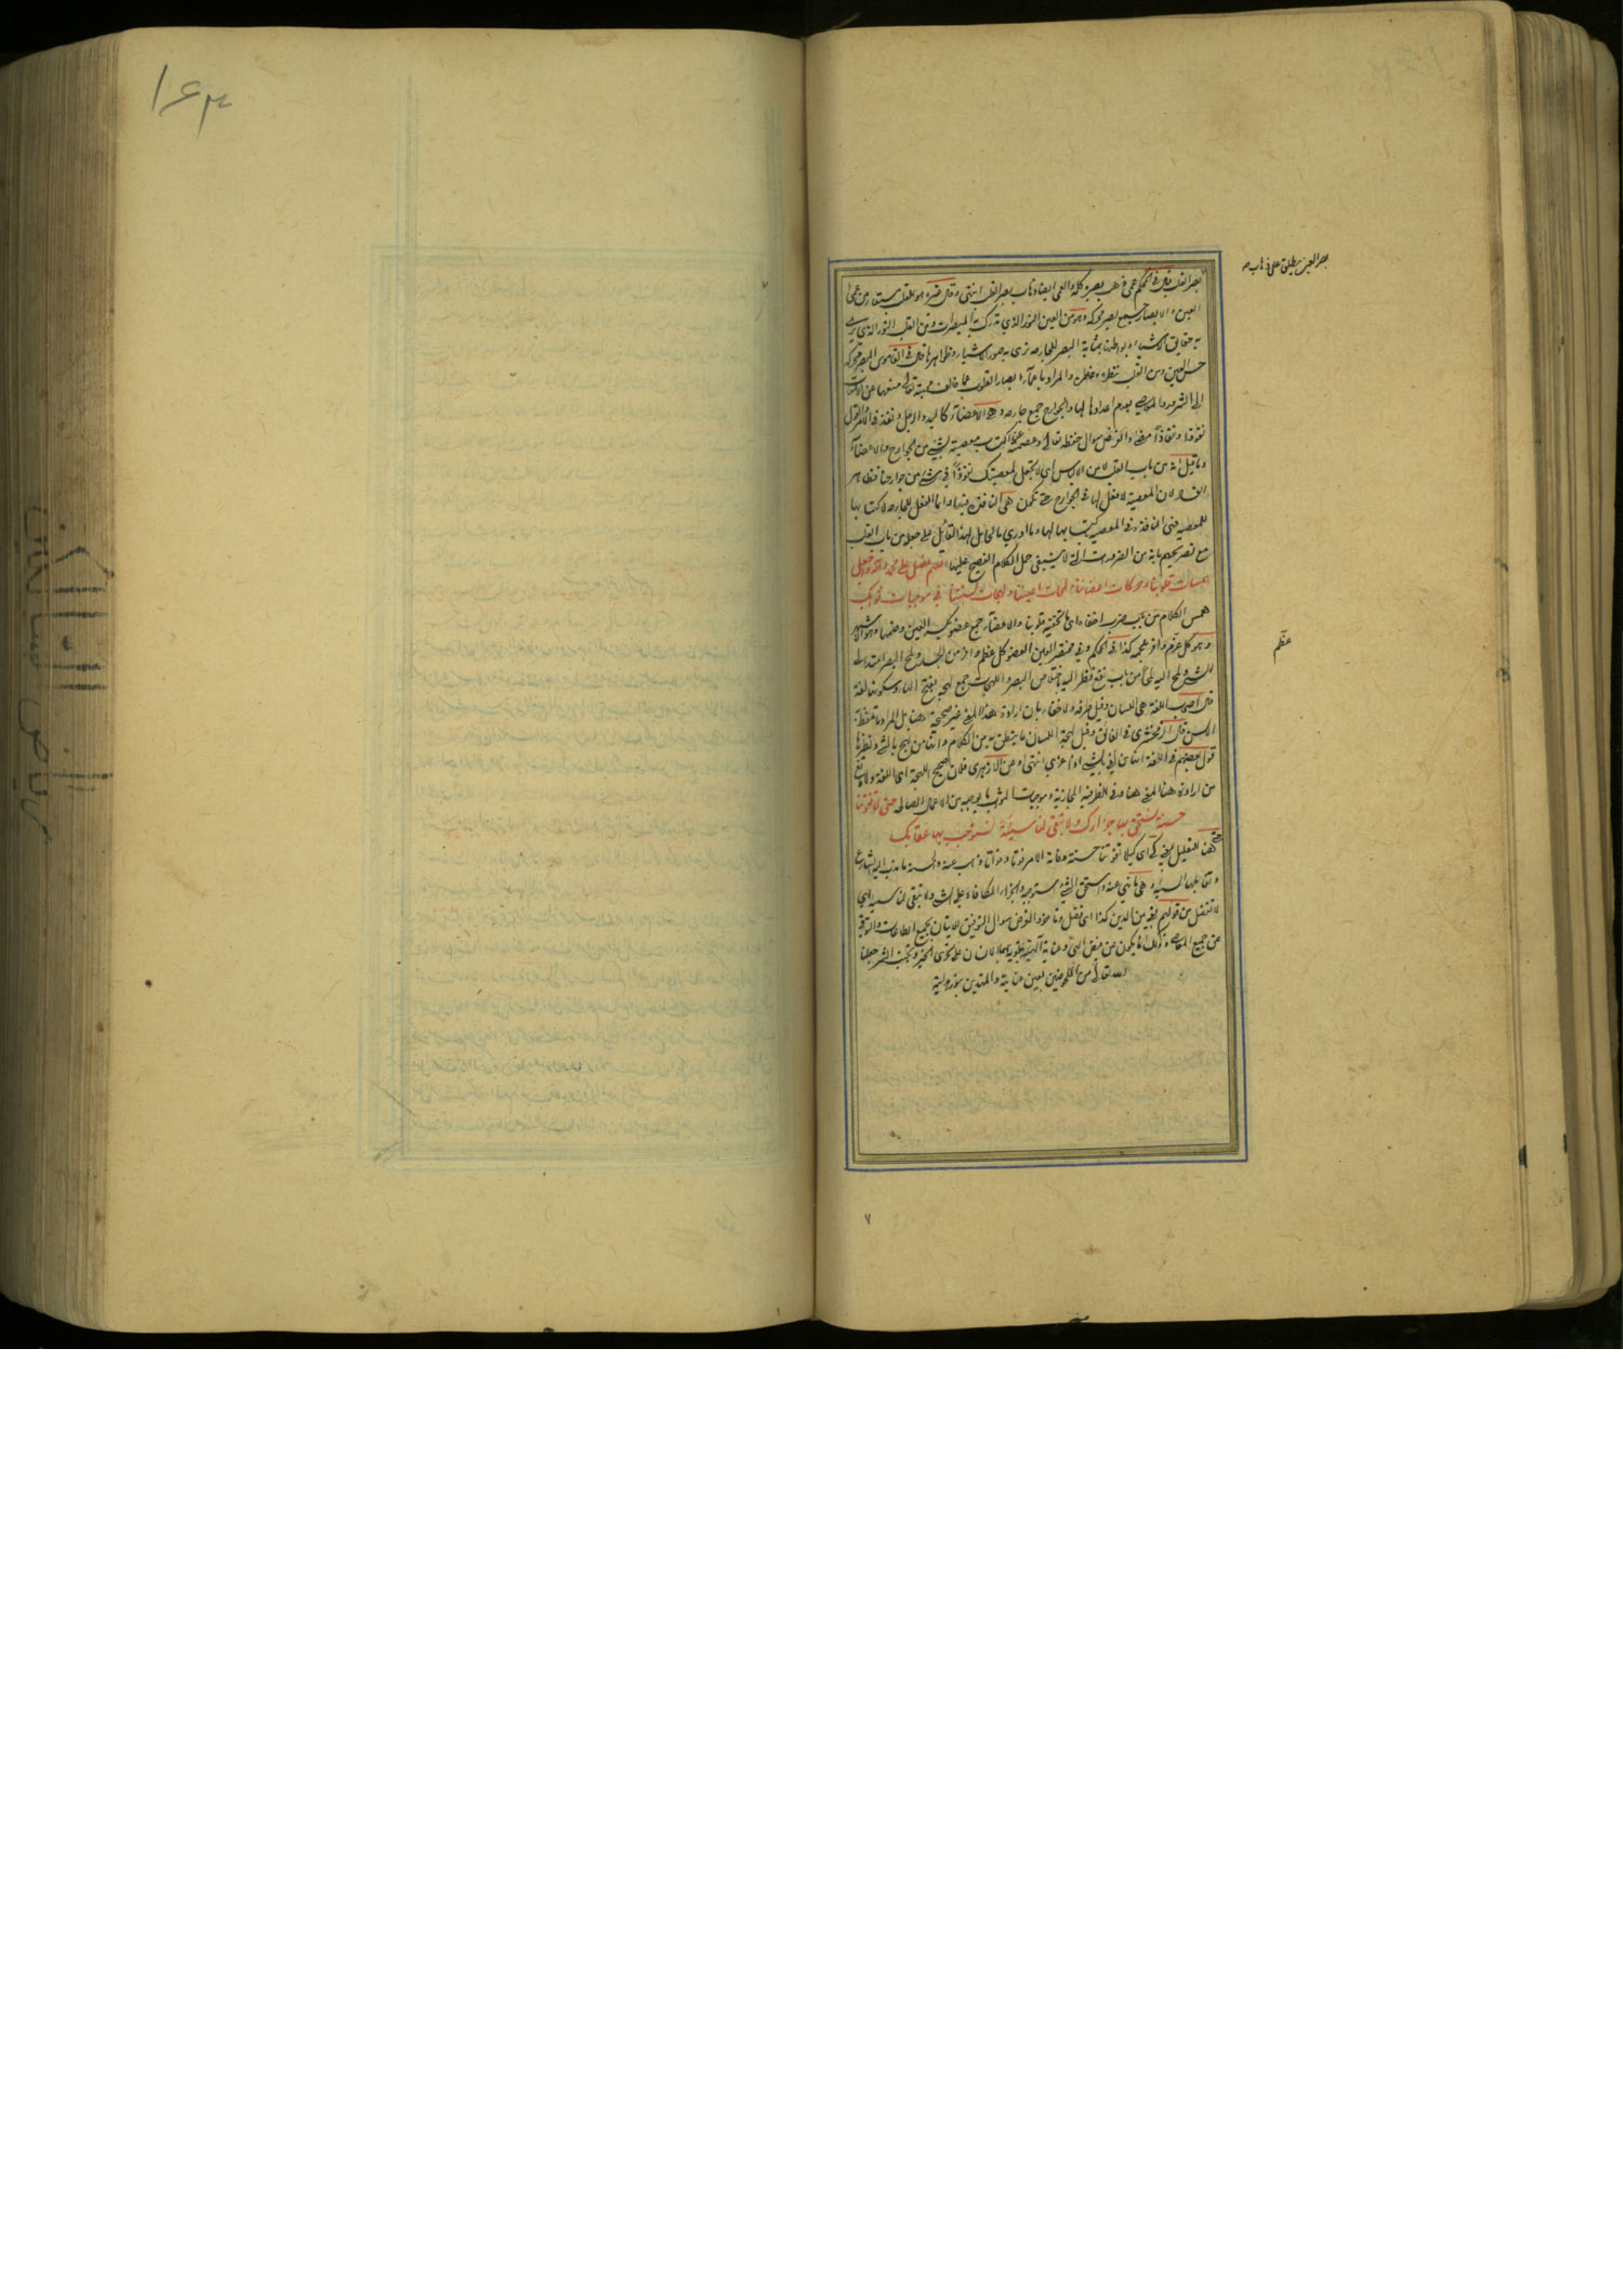 بصر القلب قال في المحكم عمى ذهب بصره كله والعمى ايضا ذهاب بصر القلب انتهى وقال غيره هو للقلب مستعار من عمى
العين والابصار جمع بصر محركة وهو من العين النور الذي تدرك به المبصرات ومن القلب النور الذي يرى
به حقايق الاشياء وبواطنها بمثابة البصر للجارحة ترى به صور الاشياء وظواهرها قال في القاموس البصر محركة
حس العين ومن القلب نظره وخاطره والمراد باعماء ابصار القلوب عما خالف محبته تعالى منعها عن الالتفات
الى الشرور والمعاصي بعدم اعدادها لها والجوارح جمع جارحة وهي الاعضاء كاليد والرجل ونفذ في الامر والقول
نفوذا ونفاذا مضى والغرض سوال حفظه تعالى وعصمته عن اكتساب معصيته بشيء من الجوارح والاعضاء
وما قيل انه من باب القلب لامن الالباس اى لا تجعل لمعصيتك نفوذا في شيء من جوارحنا فظاهر
الفساد لان المعصية لا فعل لها في الجوارح حتى تكون هي النافذة فيها وانما الفعل للجارحة لاكتسابها
للمعصية فهي النافذة في المعصية بكسبها لها وما ادري ما الحامل لهذا القائل على جعله من باب القلب
مع تصريحهم بانه من الضرورات التي لا ينبغي حمل الكلام الفصيح عليها اللهم فصل على محمد واله واجعل
همسات قلوبنا وحركات اعضائنا ولمحات اعيننا ولهجات السنتنا في موجبات ثوابك
همس الكلام من باب ضرب اخفاه اى ما تخفيه قلوبنا والاعضاء جمع عضو بكسر العين وضمها وهو الاشهر
وهو كل عظم وافر بلحمه كذا في المحكم وفي مختصر العين العضو كل عظم وافر من الجسد ولمح البصر امتد الى
الشيء ولمح اليه لمحا من باب نفع نظر اليه باختلاس البصر واللهجات جمع لهجة بفتح الهاء وسكونها لغة
قال اصحاب اللغة هي اللسان وقيل طرفه ولا خفاء بان ارادة هذا المعنى غير صحيحة هنا بل المراد ما تلفظه
الالسن قال الزمخشري في الفائق وقيل لهجة اللسان ما ينطق به من الكلام وانها من لهج بالشيء ونظيرها
قول بعضهم في اللغة انها من لغى بالشيء اذا غري به انتهى وعن الازهري فلان فصيح اللهجة اى اللغة ولا مانع
من ارادة هذا المعنى هنا وفي للظرفية المجازية وموجبات الثواب ما يوجبه من الاعمال الصالحة حتى لا تفوتنا
حسنة نستحق بها جزاءك ولا تبقى لنا سيئة نستوجب بها عقابك
حتى هنا للتعليل بمعنى كي اى كيلا تفوتنا حسنة وفاته الامر فوتا وفواتا ذهب عنه والحسنة ما ندب اليه الشارع
وتقابلها السيئة وهي ما نهى عنه واستحق الشيء استوجبه والجزاء المكافاة على الشيء ولا تبقى لنا سيئة اى
لا تفضل من قولهم بقي من الدين كذا اى فضل وتاخر والغرض سوال التوفيق للاتيان بجميع الطاعات والتوقي
عن جميع المعاصي وذلك انما يكون عن فيض الهي وعناية الهية يقوى بهما الانسان على تحري الخير وتجنب الشر جعلنا
الله تعالى من الملحوظين بعين عنايته والمهتدين بنور هدايته
بصر العين ويطلق على ذهاب صح
عظم
٧
١٦٣
رياض السالكين